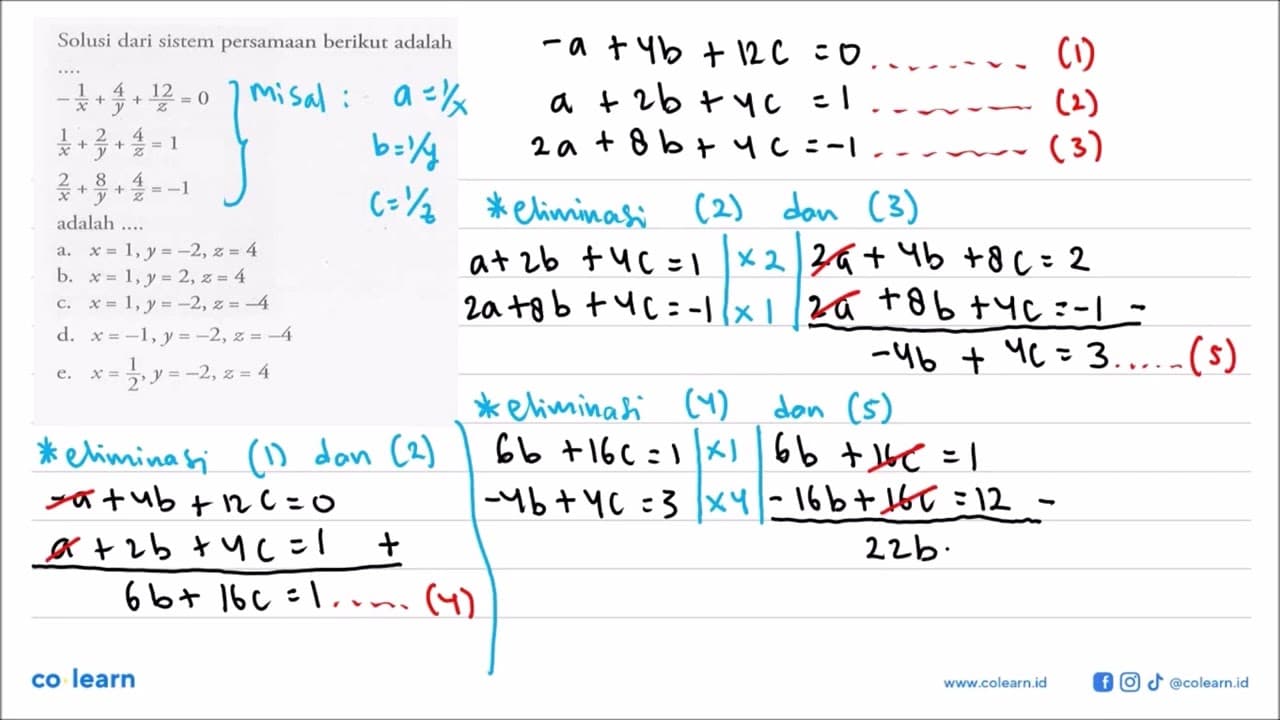 Solusi dari sistem persamaan berikut adalah
....
-1/x + 4/y + 12/z = 0
1/x + 2/y + 4/z = 1
2/x + 8/y + 4/z = -1
adalah ....
a. x = 1, y = -2, z = 4
b. x = 1, y = 2, z = 4
c. x = 1, y = -2, z = -4
d. x = -1, y = -2, z = -4
e. x = 1/2, y = -2, z = 4
misal : a = 1/x
b = 1/y
c = 1/z
-a + 4b + 12c = 0 ........ (1)
a + 2b + 4c = 1 ........ (2)
2a + 8b + 4c = -1 ........ (3)
* eliminasi (1) dan (2)
-a + 4b + 12c = 0
a + 2b + 4c = 1 +
6b + 16c = 1 ...... (4)
* eliminasi (2) dan (3)
a + 2b + 4c = 1 | x 2 | 2a + 4b + 8c = 2
2a + 8b + 4c = -1 | x 1 | 2a + 8b + 4c = -1 -
-4b + 4c = 3 ...... (5)
* eliminasi (4) dan (5)
6b + 16c = 1 | x 1 | 6b + 16c = 1
-4b + 4c = 3 | x 4 | -16b + 16c = 12 -
22b.
co learn
www.colearn.id
@colearn.id